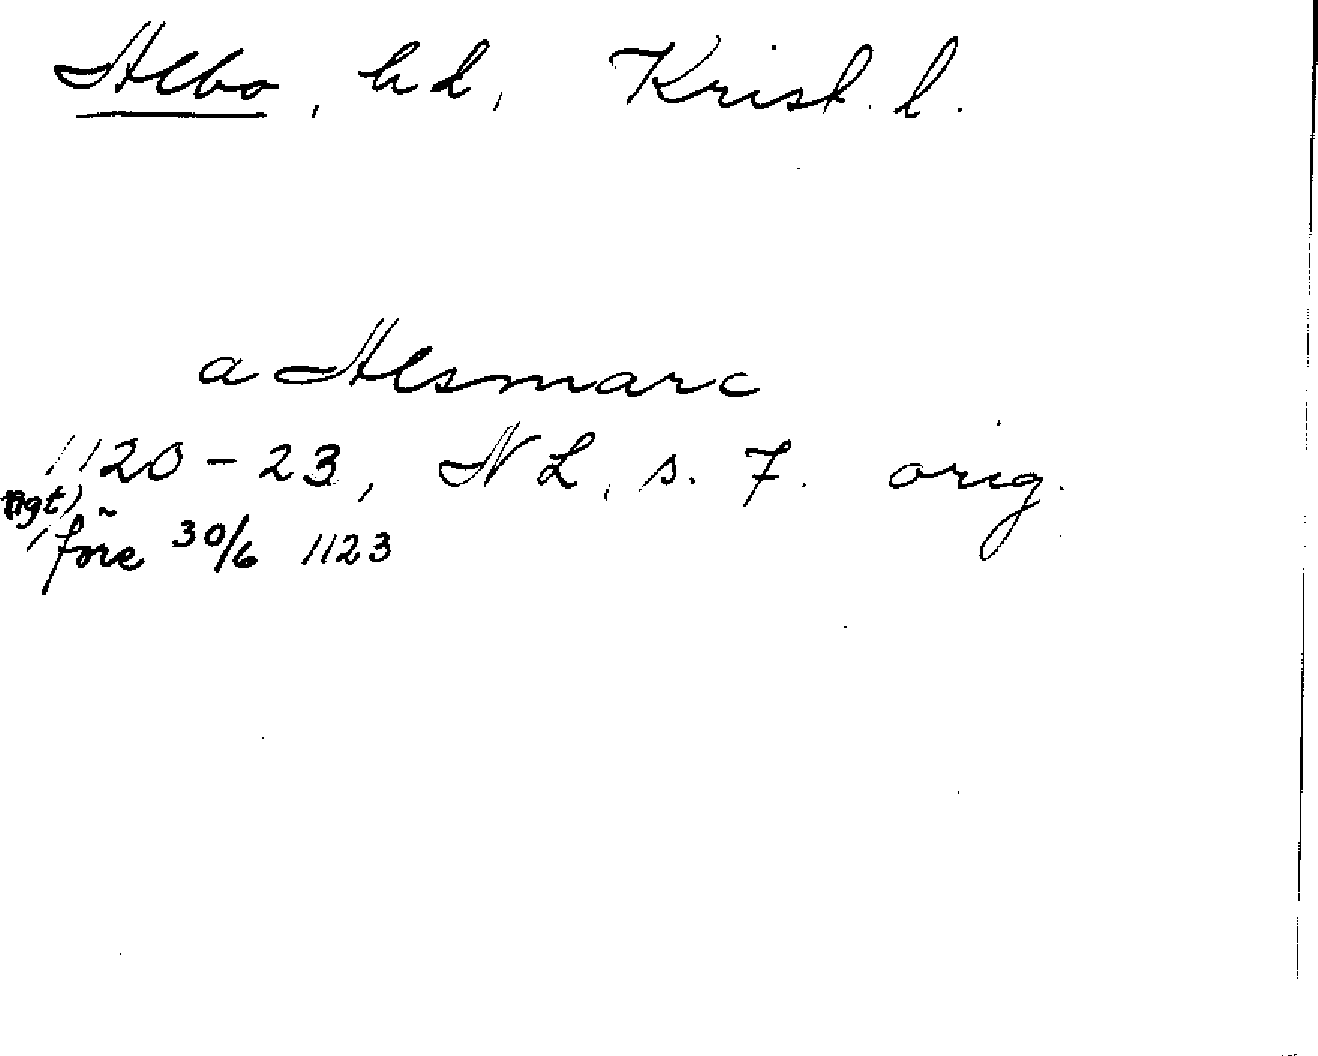 Albo, hd, Krist. l.
a Alsmarc
1120-23, NL, s. 7. orig.
före 30/6 1123